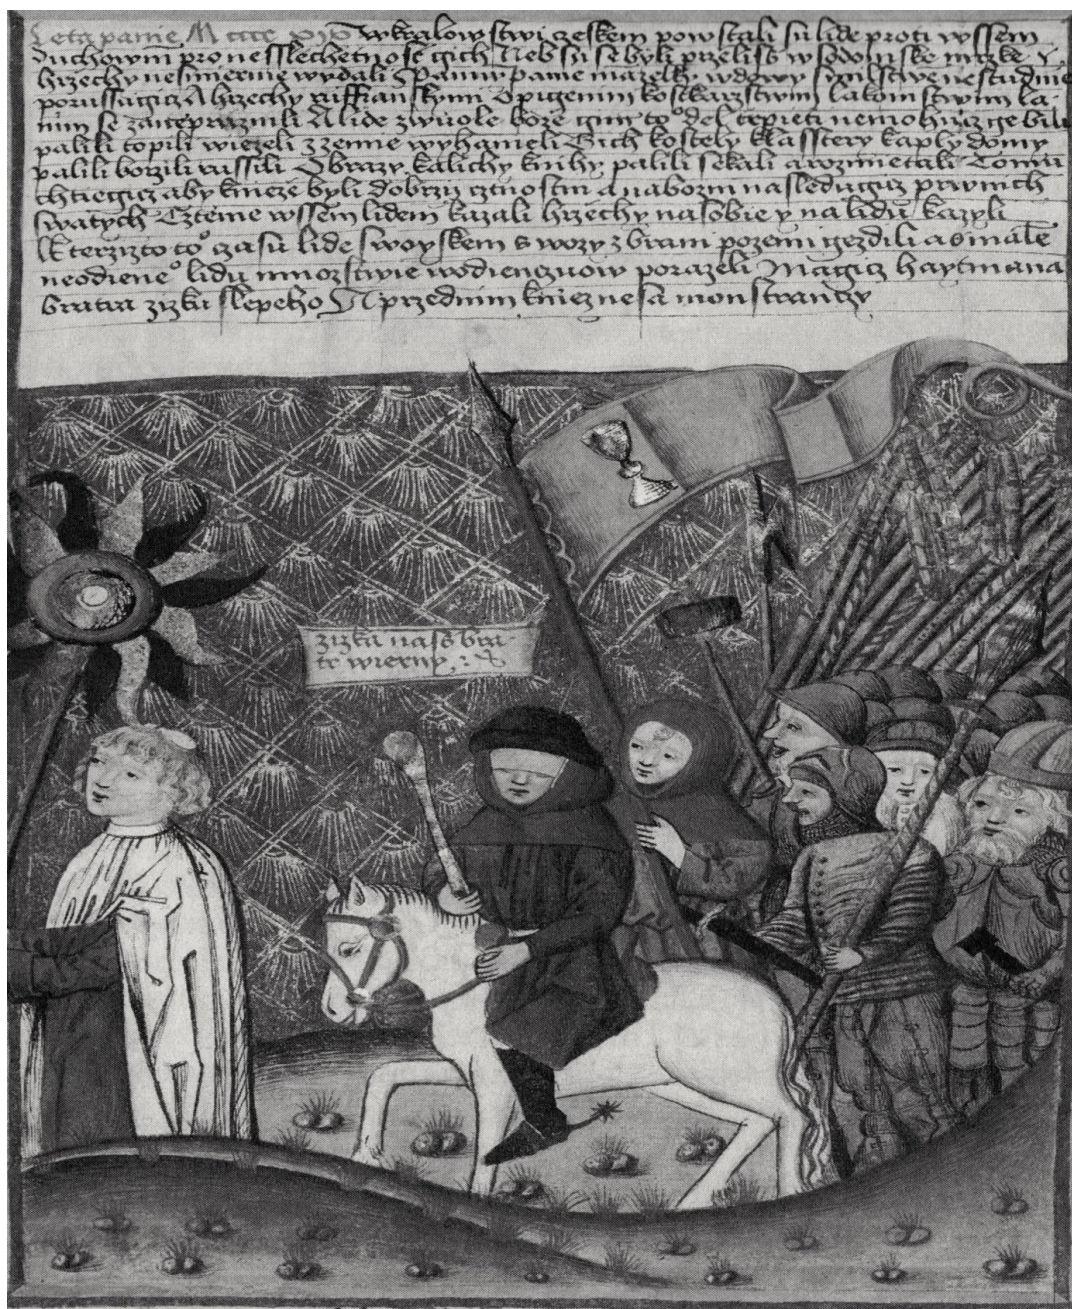 Leta panie M cccc xix W kralowstwi czeskem powstali su lide proti wssem
duchownim pro nesslechetnost gich Neb su se byli przeliss w sodomske
hrzechy nesmiernie wydali Panny panie mazelky wdowy smilstwem nestudnie
porussugicz A hrzechy ruffianskymi Opigenim kostkarzstwim lakomstwim la
nim se zanepraznili A lide zwuole bozie giny to del trpieti nemohucz ge bili
palili topili wiezeli z zemie wyhanieli Gich kostely klasstery kaply domy
palili borzili russili Obrazy kalichy knihy palili sekali a rozmietali Tomu
chtiegicz aby knieze byli dobrzy cztnostni a nabozni nasledugicz prwnich
swatych Cztenie wssem lidem kazali hrzechy na sobie y na lidu kazyli
Kterzizto to czasu lide s woyskem s wozy z brani po zemi gezdili a s male
neodieneho lidu mnozstwie wodienczuow porazeli Magicz haytmana
bratra zizku slepeho A przednim kniez nesa monstranczy
zizka nass bra-
tr wierny